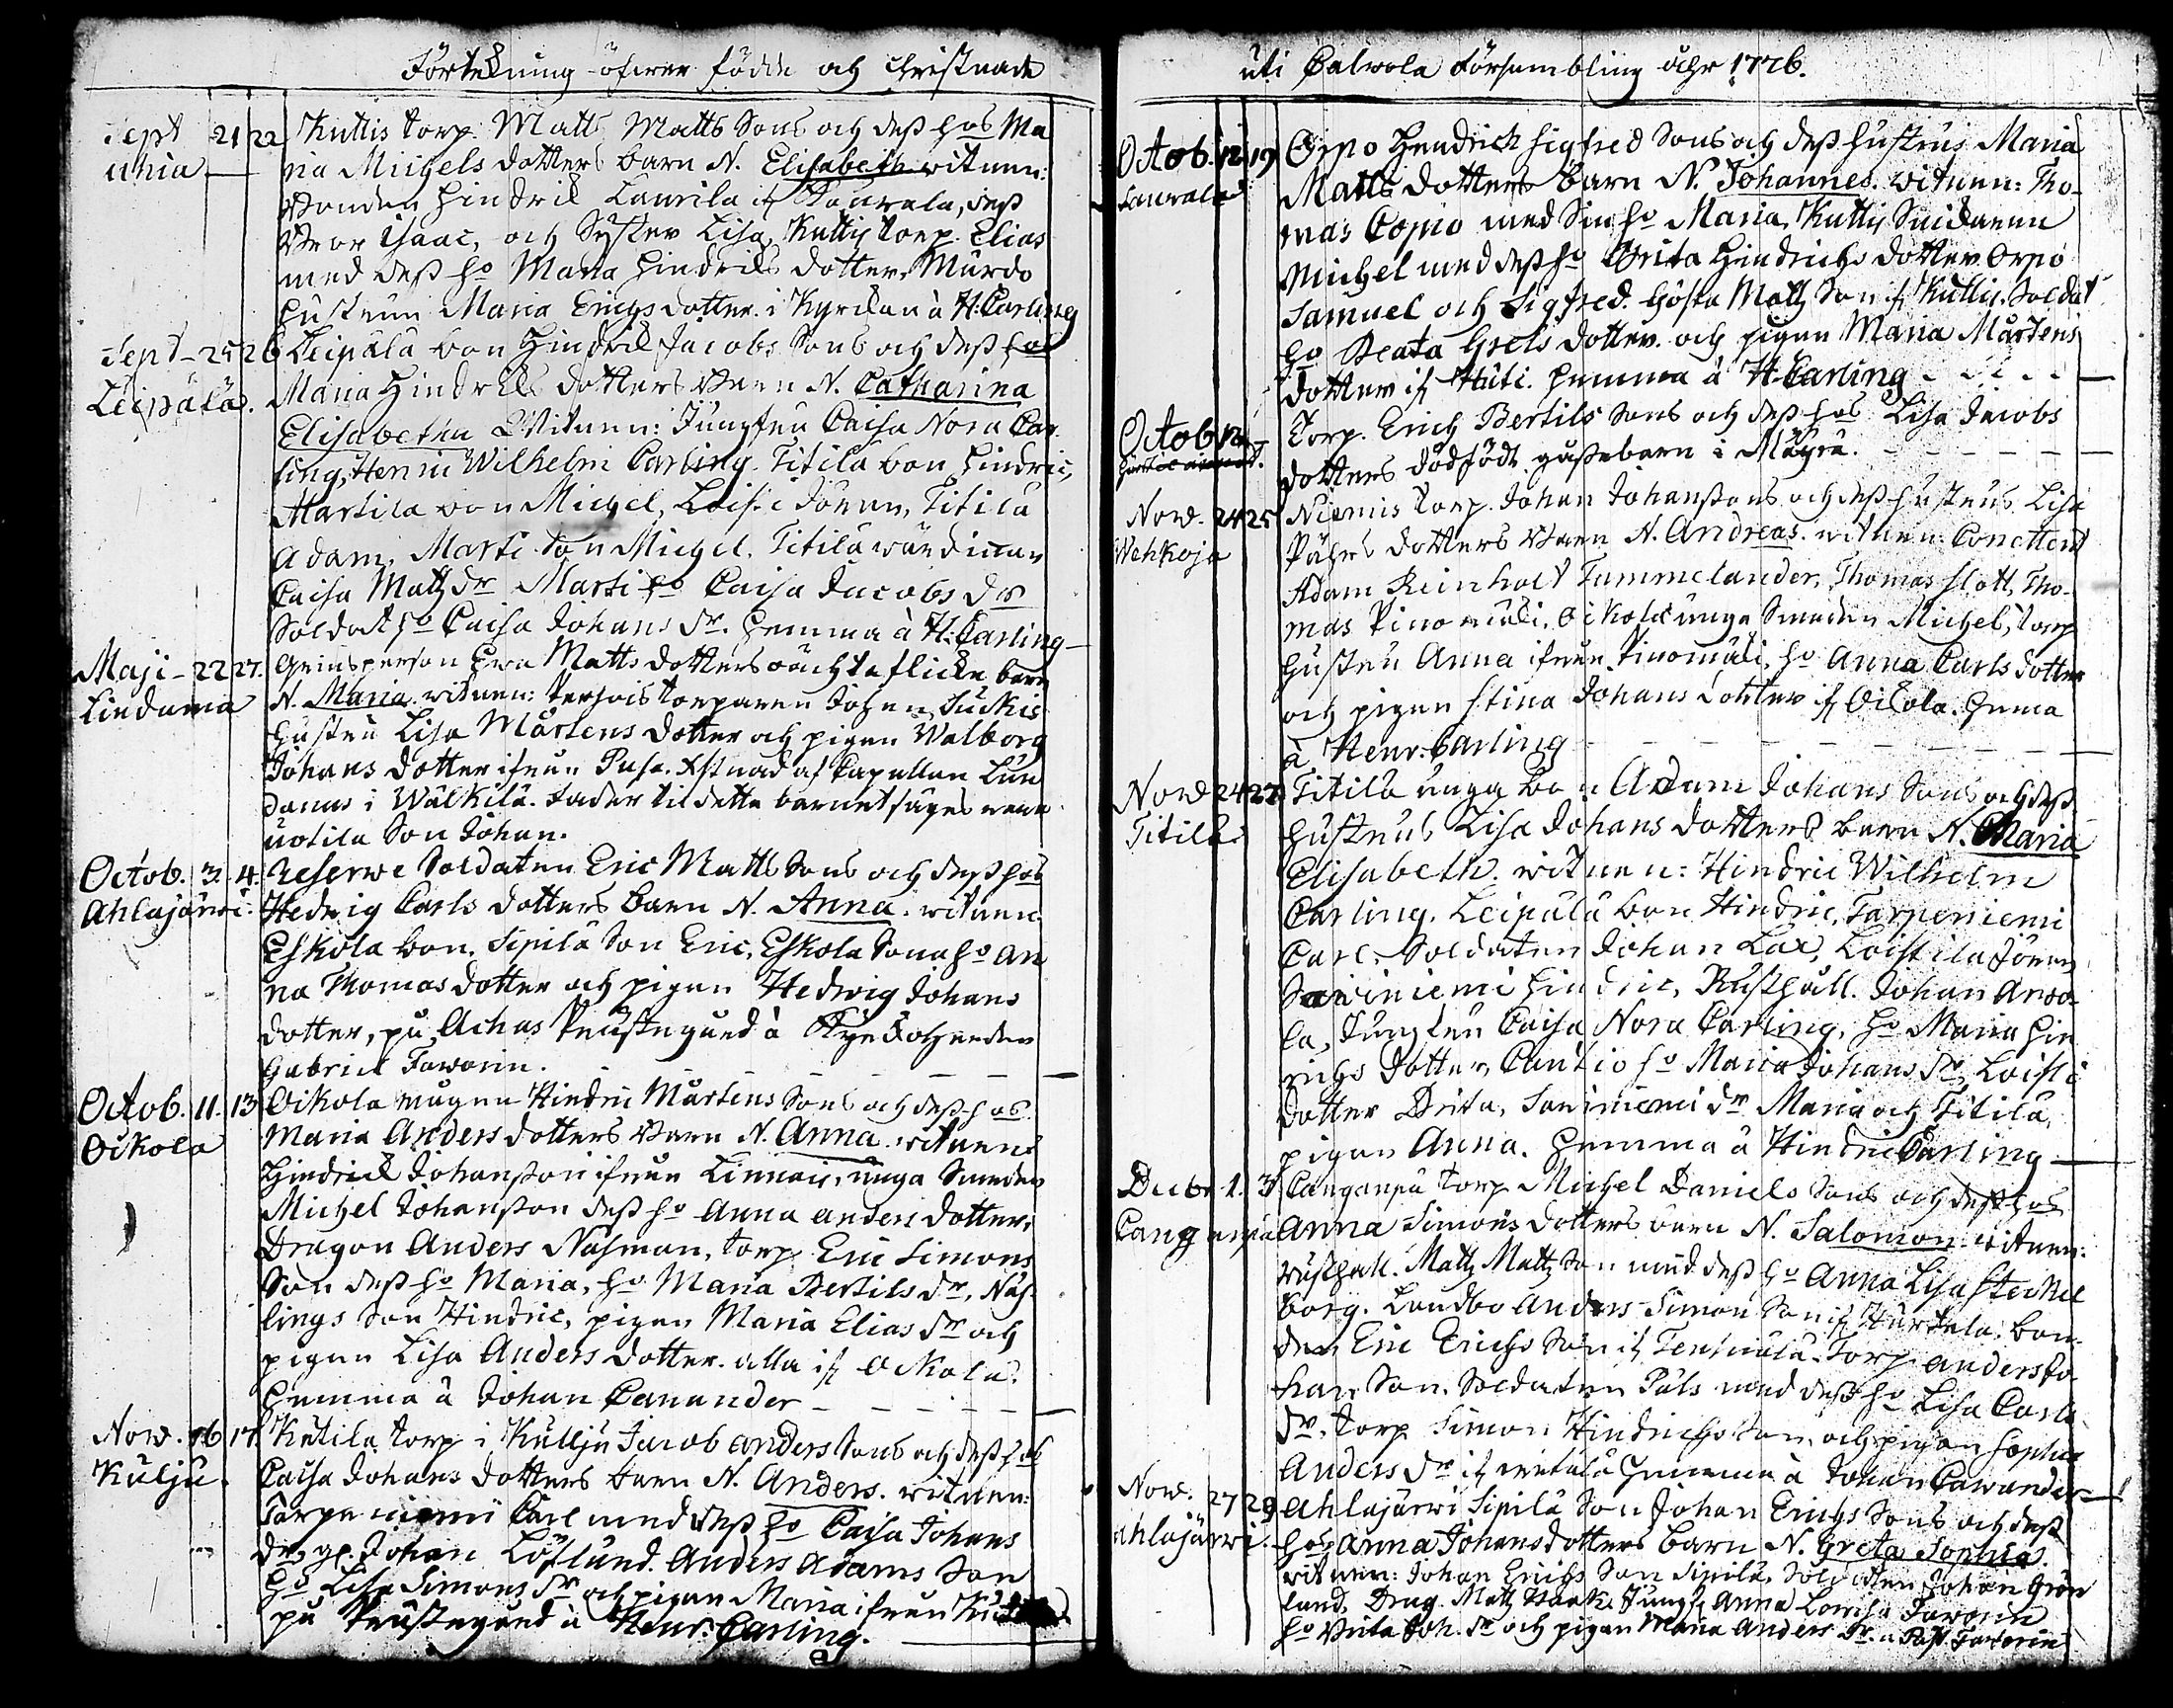 Förtekning öfwer födde och Christnade
Sept 21 22 Kuttis torp. Matts Matts Sons och dess hos Ma
ria Michels dotters barn N. Elisabeth witnen:
Bonden Hindric Laurila if Sauwala, dess
Bror Isaac, och Syster Lisa, Kuttis torp. Elias
med dess ho Maria Hindrics dotter, Murdo
hustrun Maria Erichs dotter. i Kyrckan à H: Carling
Sept 25 26 Leipälä bon Hindric Jacobs Sons och dess hos
Leipälä. Maria Hindrics dotters Barn N. Catharina
Elisabetha Witnen: Jungfru Caisa Nora Car
ling, Henric Wilhelm Carling. Titilä bon Hindric,
Martila bon Michel, Loisti Jöran, Titilä
Adam, Marti Son Michel. Titilä wärdinnan
Caisa Matts dr Marti ho Caisa Jacobs dr
Soldat ho Caisa Johans dr. hemma à H: Carling
Maji 22 27. Qvinsperson Ewa Matts dotters oächta flicke barn
N. Maria. witnen: torparen Johan,
hustru Lisa Mårtens dotter och pigan Walborg
Johans dotter ifrån Pusa. Xstnad af Capellan Lun
danus i Wälkilä. Fader til detta barnet säges wara
uotila Son Johan.
Octob. 3. 4. Reserwe Soldaten Eric Matts Sons och dess hos
Ahlajärwi. Hedwig Carls dotters Barn N. Anna. witnen:
Eskola bon. Sipilä Son Eric, Eskola Sona ho An
na Thomas dotter och pigan Hedwig Johans
dotter, på Achas Prästegård à Kyrckoherden
Gabriel Fawonin.
Octob. 11. 13 Oikola mågen Hindric Mårtens Sons och dess hos
Oikola Maria Anders dotters Barn N. Anna. witnen:
Hindric Johansson ifrån Linnais, unga Smeden
Michel Johansson dess ho Anna Anders dotter,
Dragon Anders Nasman, torp. Eric Simons
Son dess ho Maria, ho Maria Bertils dr, Näs
lings Son Hindric, pigan Maria Elias dr och
pigan Lisa Anders dotter. alla if Oikola.
hemma à Johan Canander
Nov. 16 17. Kutila torp. i Kulju Jacob Anders Sons och dess hos
Kulju. Caisa Johans dotters barn N. Anders. witnen:
Tarpe niemi Carl med dess ho Caisa Johans
dr, gl. Johan Löflund. Anders Adams Son
ho Lisa Simons dr och pigan Maria ifrån
på Prästegård à Henr: Carling.
uti Calwola Försambling åhr 1776.
Octob. 12 19 Orpo Hendrich Sigfred Sons och dess hustrus Maria
Sauwala Matts dotters Barn N. Johannes. witnen: Tho-
mas Copio med Sin ho Maria, Kuttis Snickaren
Michel med dess ho Brita Hindrichs dotter. Orpo
Samuel och Sigfred. Gösta Matts Son if Kuttis. Soldat
ho Beata Grels dotter. och pigan Maria Mårtens
dotter if Huti. hemma à H: Carling
Octob. 12 Torp. Erich Bertils Sons och dess hos Lisa Jacobs
dotters dödfödt gossebarn i Mäyrä.
Nov. 24 25 Niemis torp. Johan Johanssons och dess hustrus Lisa
Wehkoja Påhrs dotters Barn N. Andreas. witnen: Cornettent
Adam Reinholt Tammelander, Thomas Slott, Tho-
mas Pinomäki. Oikola unga Smeden Michel, torp.
hustru Anna ifrån Pinomäki, ho Anna Carls dotter
och pigan Stina Johans dotter if Oikola. hemma
à Henr. Carling
Nov 24 27 Titilä unga bon Adam Johans Sons och dess
Titilä. hustrus Lisa Johans dotters barn N. Maria
Elisabeth. witnen: Hindric Wilhelm
Carling. Leipälä bon Hindric, Tarpeniemi
Carl, Soldaten Johan Lax, Loistila Jöran
Sawiniemi Hindric, Rusthåll. Johan Arwo-
la, Jungfru Caisa Nora Carling, ho Maria Hin
richs dotter, Cantio ho Maria Johans dr, Loisti
dotter Brita, Sawiniemi dr Maria och Titilä
pigan Anna. hemma à Hindric Carling
Decbr 1. 3 Canganpä torp. Michel Daniels Sons och dess hos
Canganpä Anna Simons dotters barn N. Salomon. witnen:
rusthåll. Matts Matts Son med dess ho Anna Lisa
borg. Landbo Anders Simons Son if Hurtala. bon-
den Eric Erichs Son if Torp. Anders Jo
hans Son. Soldaten Påls med dess ho Lisa Carls
dr. torp. Simon Hindrichs Son, och pigan Sophia
Anders dr if hemma à Johan Canander
Nov. 27 29 Ahlajärwi Sipilä Son Johan Erichs Sons och dess
Ahlajärwi. hos Anna Johans dotters barn N. Greta Sophia.
witnen: Johan Erichs Son Sipilä, Soldaten Johan Grön
lund, Drag. Matts Jungf. Anna Lovisa Fawonin
ho Brita Joh. dr och pigan Maria Anders dr. à Past. Fawonin